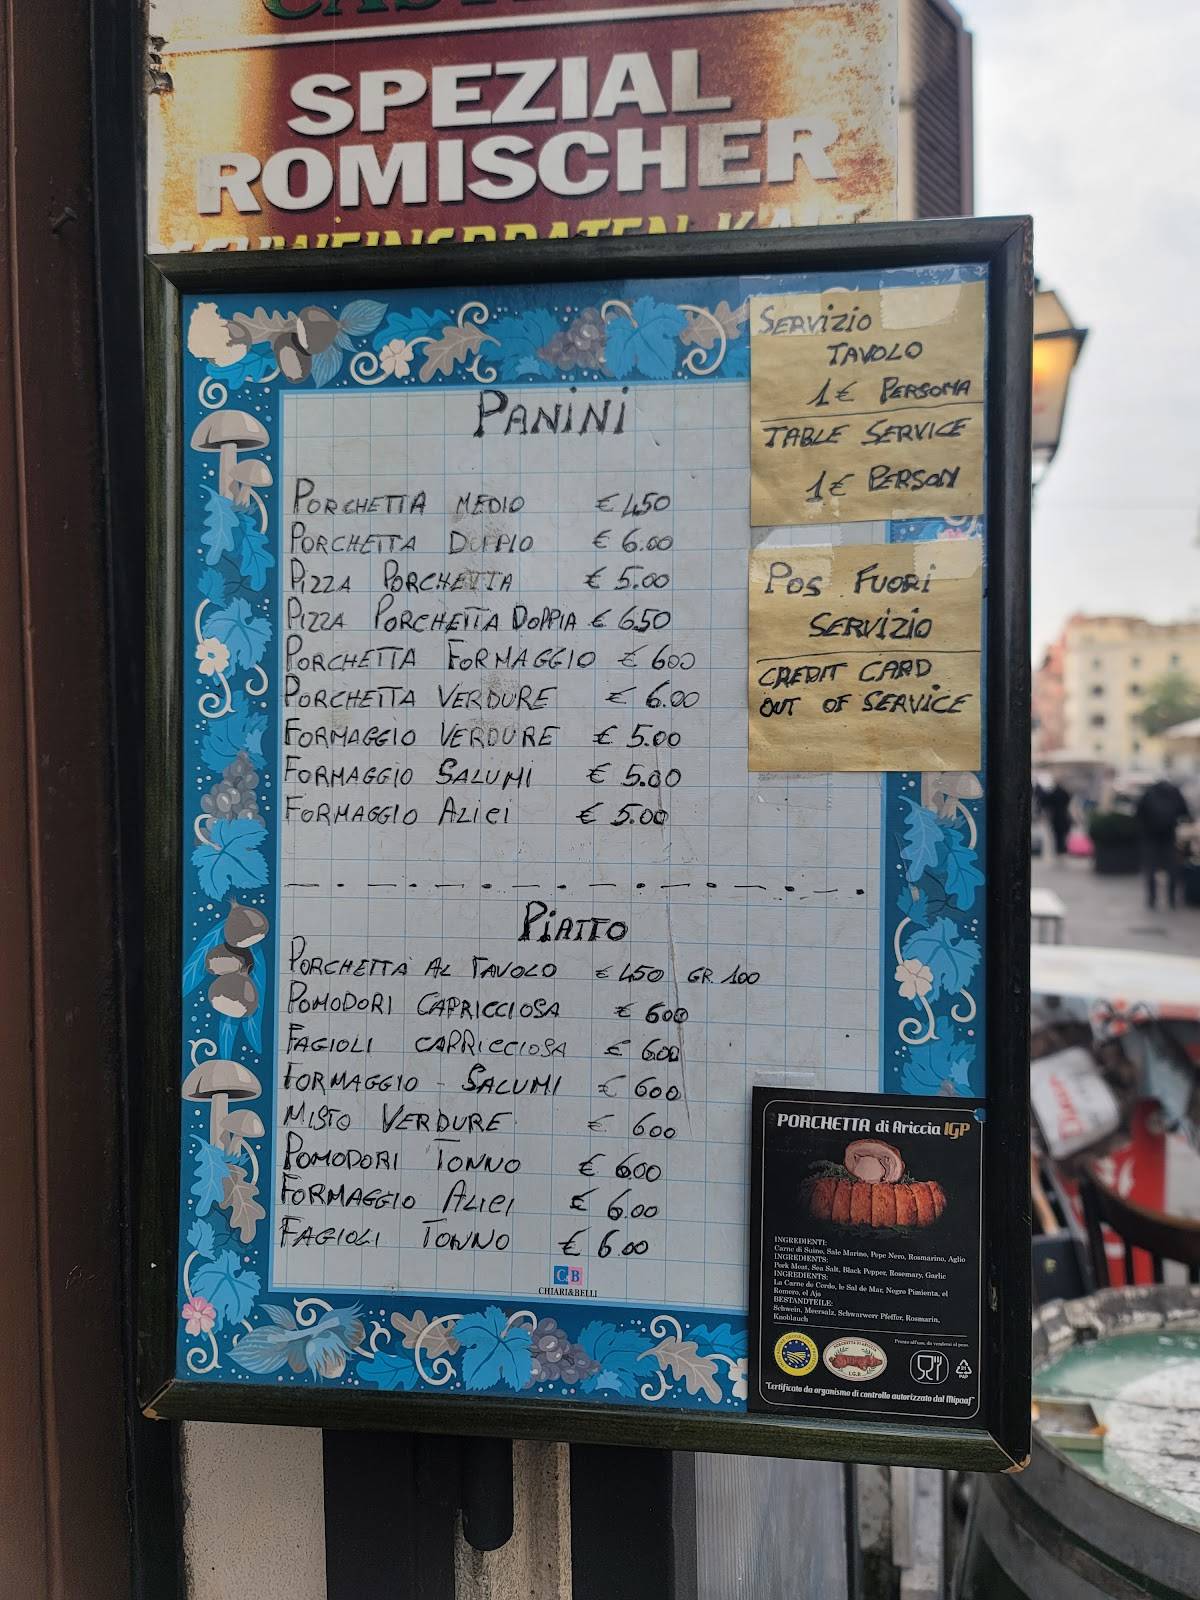 SPEZIAL
ROMISCHER
SCHWEINSBRATEN KALT
SERVIZIO
TAVOLO
1€ PERSONA
TABLE SERVICE
1€ PERSON
PANINI
PORCHETTA MEDIO € 4,50
PORCHETTA DOPPIO € 6.00
PIZZA PORCHETTA € 5.00
PIZZA PORCHETTA DOPPIA € 6,50
PORCHETTA FORMAGGIO € 600
PORCHETTA VERDURE € 6.00
FORMAGGIO VERDURE € 5.00
FORMAGGIO SALUMI € 5.00
FORMAGGIO ALICI € 5.00
POS FUORI
SERVIZIO
CREDIT CARD
OUT OF SERVICE
PIATTO
PORCHETTA AL TAVOLO € 4,50 GR. 100
POMODORI CAPRICCIOSA € 600
FAGIOLI CAPRICCIOSA € 600
FORMAGGIO - SALUMI € 600
MISTO VERDURE € 600
POMODORI TONNO € 600
FORMAGGIO ALICI € 6.00
FAGIOLI TONNO € 6.00
CB
CHIARI&BELLI
PORCHETTA di Ariccia IGP
INGREDIENTI:
Carne di Suino, Sale Marino, Pepe Nero, Rosmarino, Aglio
INGREDIENTS:
Pork Meat, Sea Salt, Black Pepper, Rosemary, Garlic
INGREDIENTS:
La Carne de Cerdo, le Sal de Mar, Negro Pimienta, el
Romero, el Ajo
BESTANDTEILE:
Schwein, Meersalz, Schwarwerr Pfeffer, Rosmarin,
Knoblauch
Pronto all'uso, da vendersi al peso.
PORCHETTA DI ARICCIA
I.G.P.
PAP
"Certificato da organismo di controllo autorizzato dal Mipaaf"